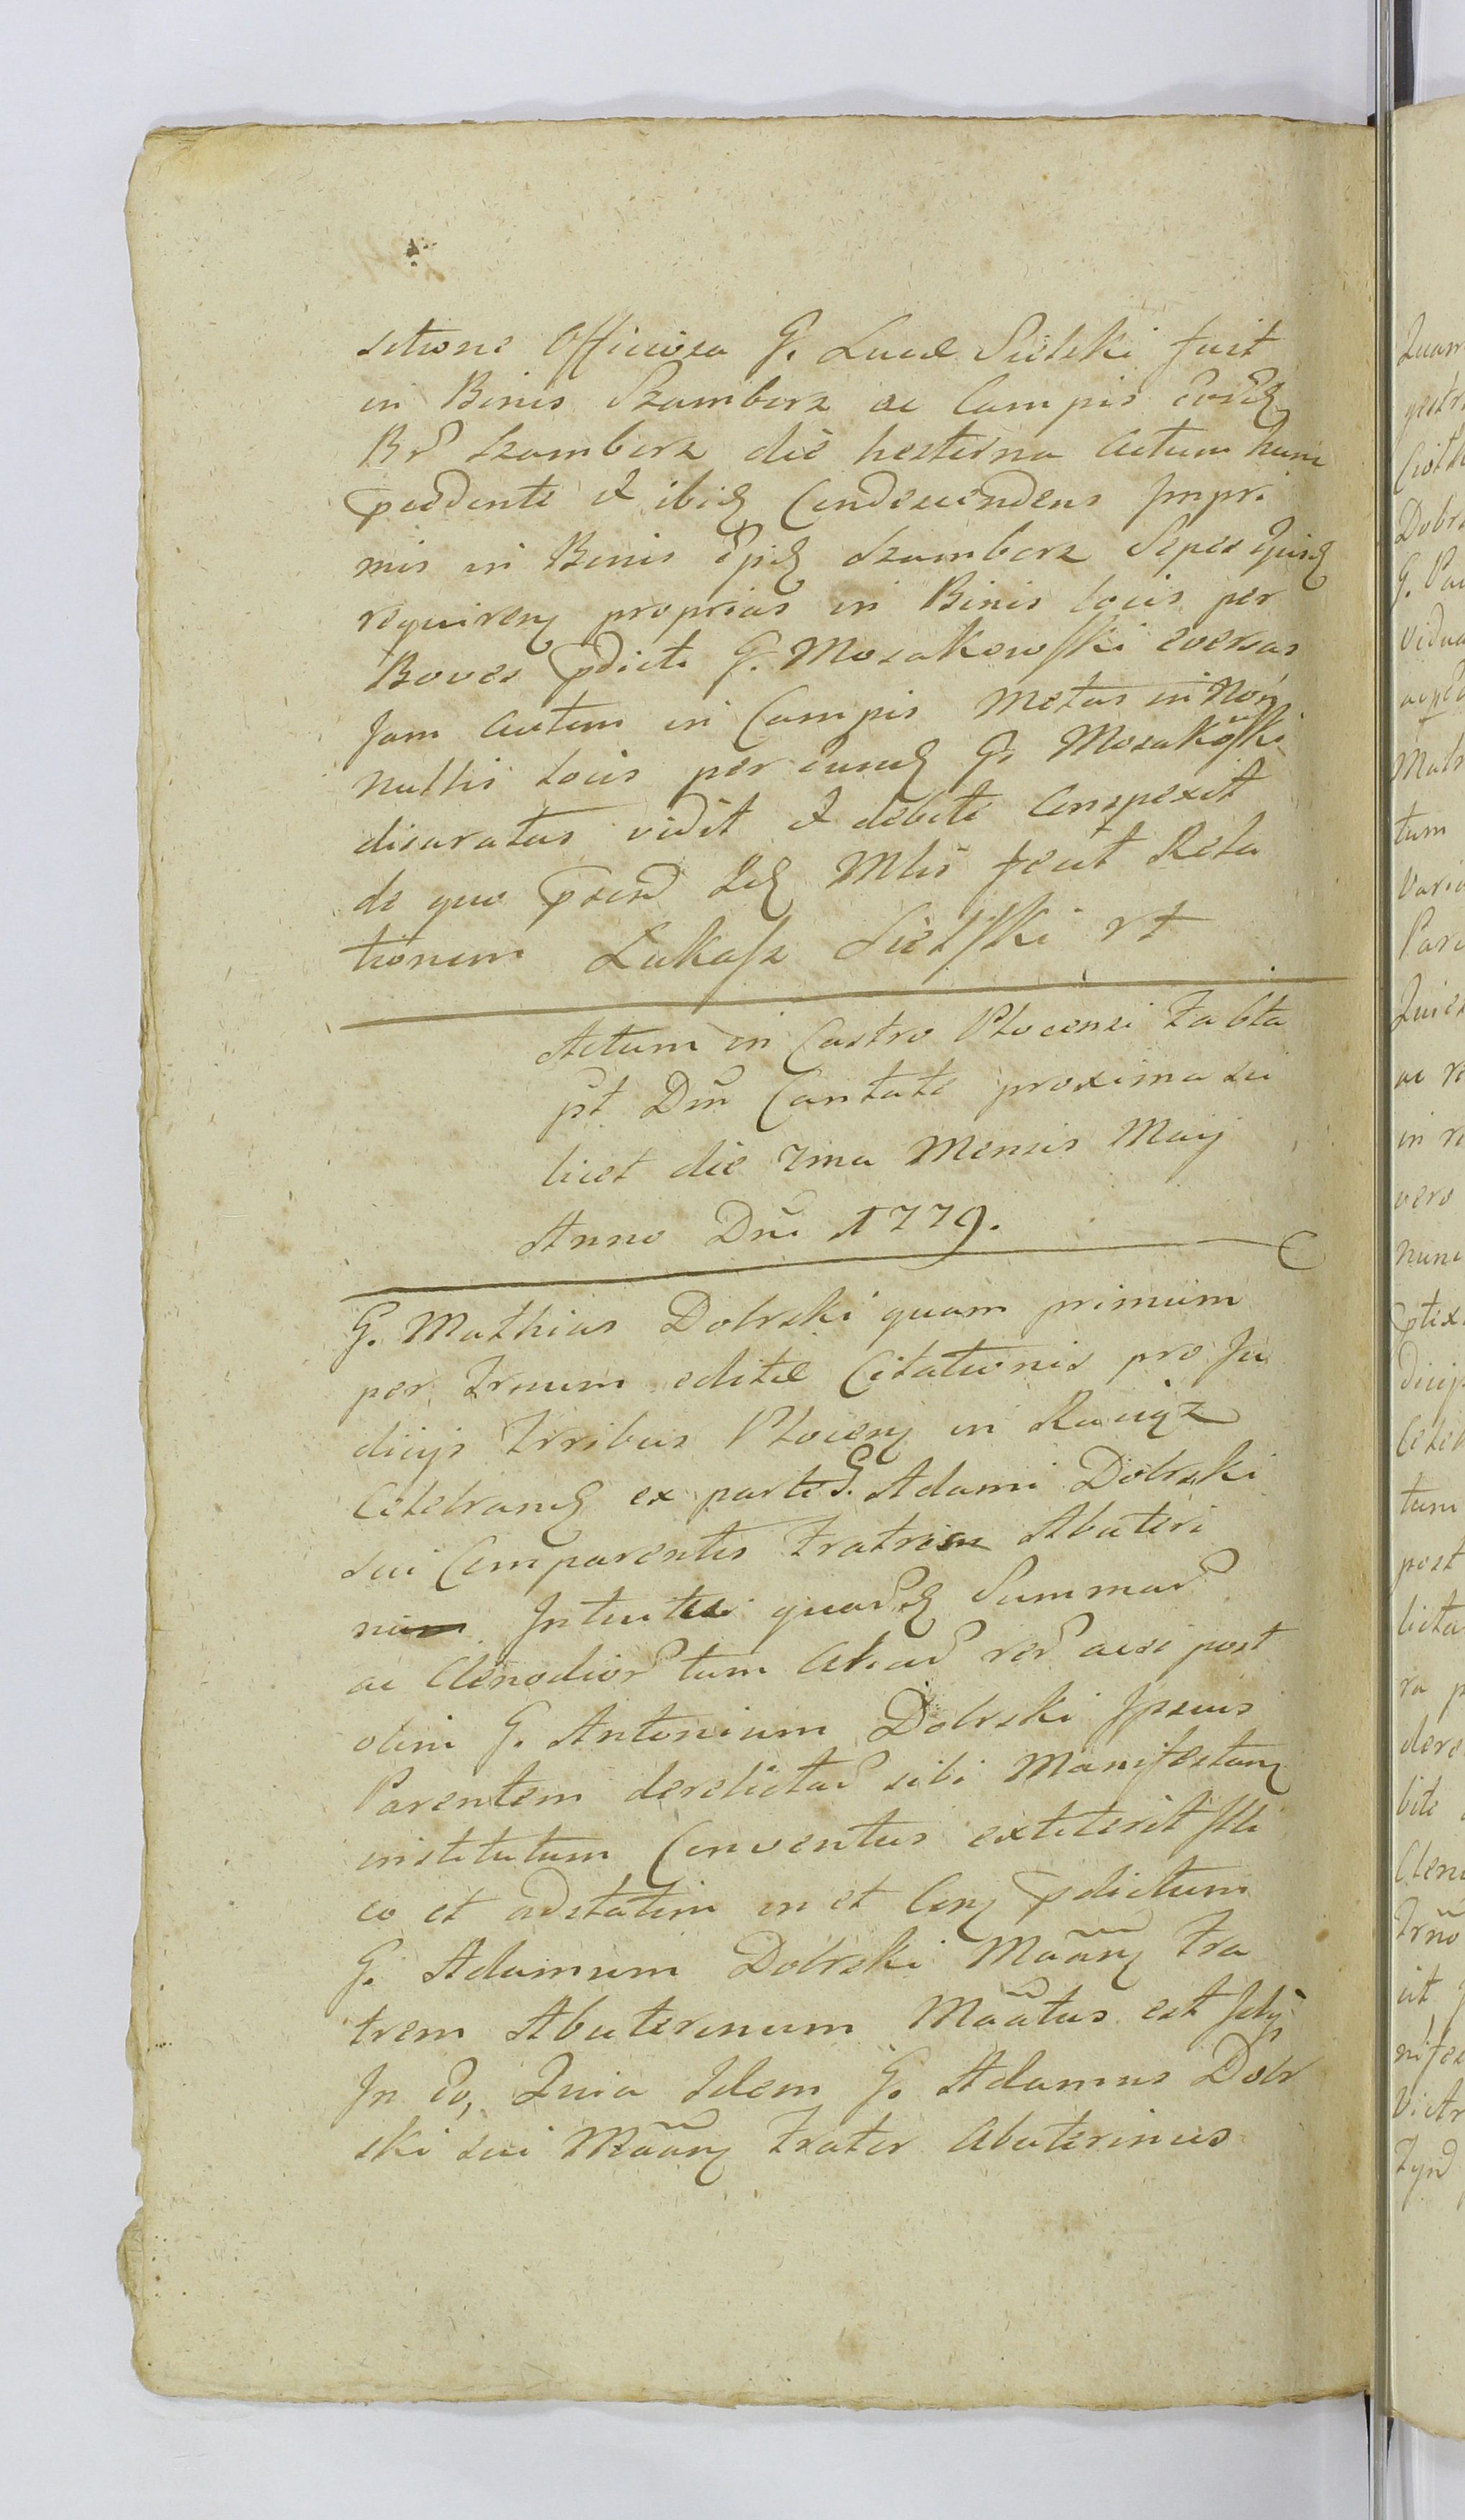 sitione Officiosa G. Lucæ Sielski fuit
in Bonis Szamborz ac Campis eorund
Br̃ Szamborz die hesterna actum hunc
pcedente et ibid Condescendens Impri
mis in Bonis ipis Szamborz Sepes ejusd
requiren proprias in Binis locis per
Boves pdicti G. Mosakowski eversas
Jam autem in Campis Metas in Non
nullis locis per eund G. Mosakoski
disaratas vidit et debite conspexit
de quo psend Id Mlis fecit Rela
tionem Łukasz Sielski rt
Actum in Castro Plocensi Fa bta
pt Dm̃ Cantate proxima sci
licet die 7ma Mensis Maij
Anno Dni 1779.
G. Mathias Dobrski quam primum
per Trnum editæ Citationis pro Ju
dicijs Trribus Plocen in Raciąz
Celebrand ex parte G. Adami Dobrski
sui Comparentis Fratris Abuteri
ni Intuitu quard Summar
ac Clenodior tum aliar rer acsi post
olim G. Antonium Dobrski Ipsius
Parentem derelictar sibi Manifestan
institutum Conventus extiterit Illi
co et adstatim in et Con pdictum
G. Adamum Dobrski Mããn Fra
trem Abuterinum Mããtus est Idq
In eo, Quia Idem G. Adamus Dobr
ski sui Mããn Frater Abuterinus